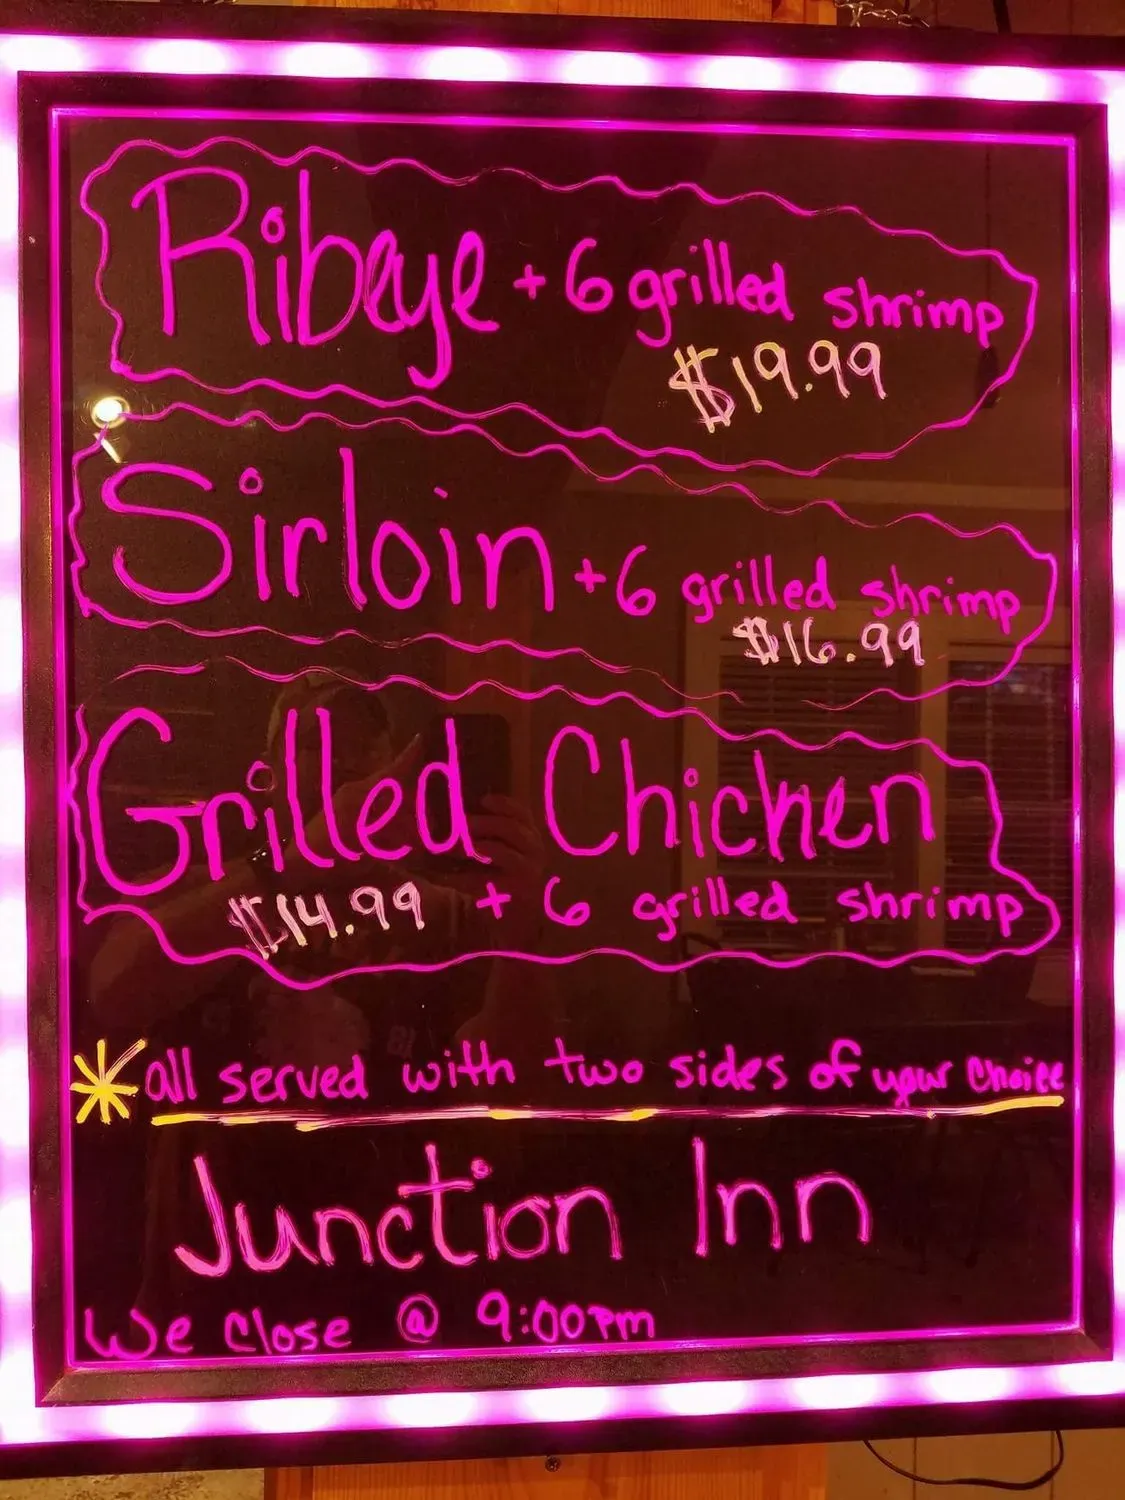 Ribeye + 6 grilled shrimp
$19.99
Sirloin + 6 grilled shrimp
$16.99
Grilled Chicken
$14.99 + 6 grilled shrimp
* all served with two sides of your choice
Junction Inn
We Close @ 9:00pm